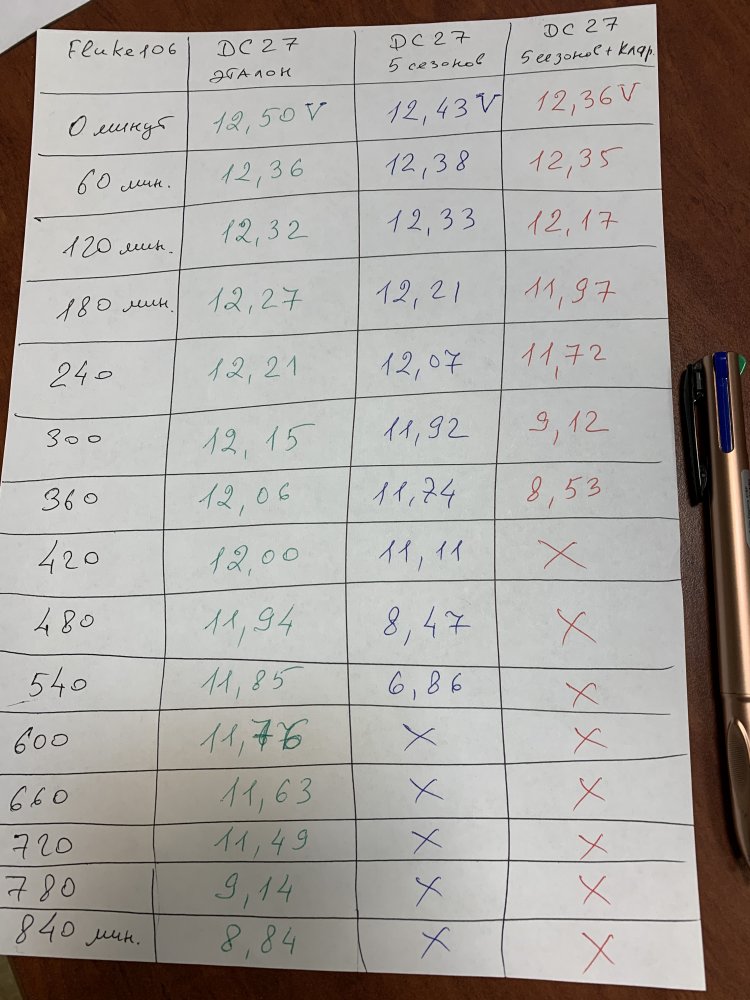 Fluke106 DC27 эталон DC27 5 сезонов DC27 5 сезонов + Клар.
0 минут 12,50V 12,43V 12,36V
60 мин. 12,36 12,38 12,35
120 мин. 12,32 12,33 12,17
180 мин. 12,27 12,21 11,97
240 12,21 12,07 11,72
300 12,15 11,92 9,12
360 12,06 11,74 8,53
420 12,00 11,11 X
480 11,94 8,47 X
540 11,85 6,86 X
600 11,76 X X
660 11,63 X X
720 11,49 X X
780 9,14 X X
840 мин. 8,84 X X